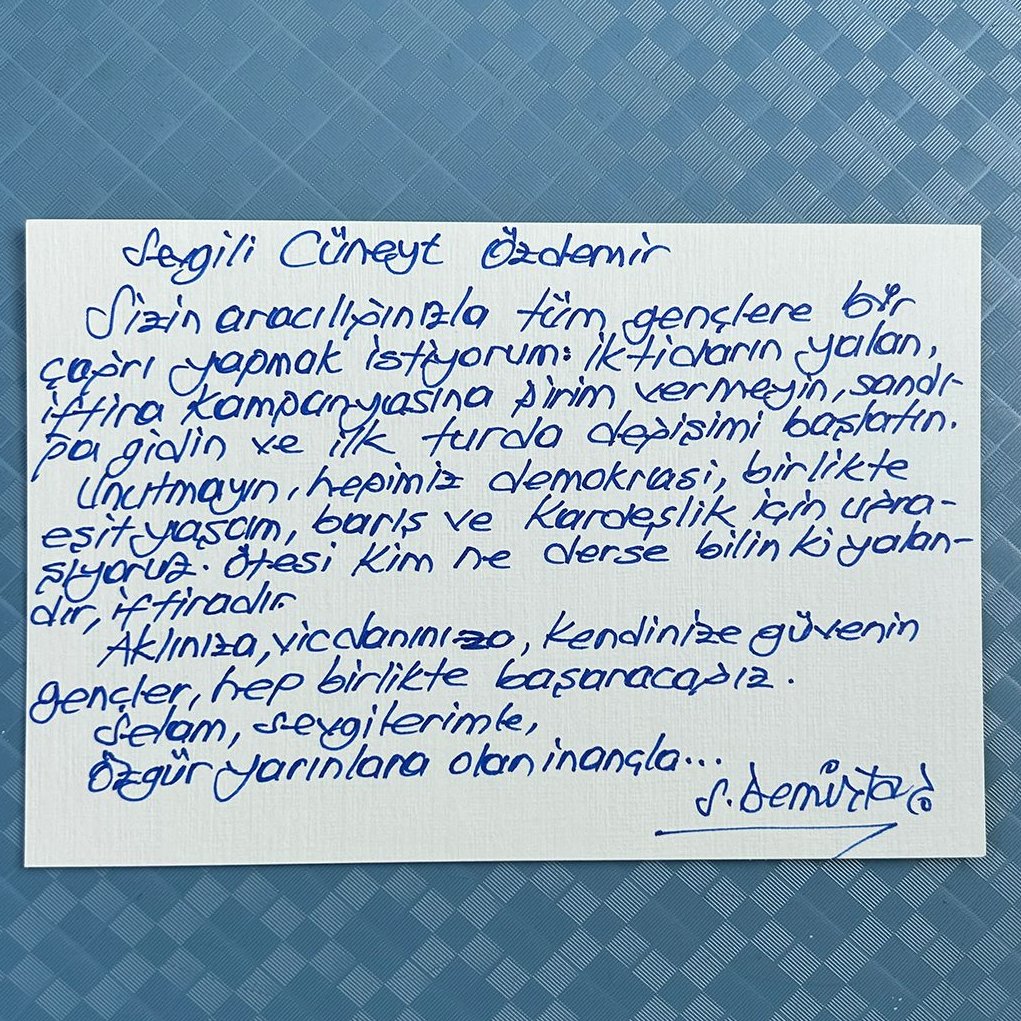 Sevgili Cüneyt Özdemir
Sizin aracılığınızla tüm gençlere bir
çağrı yapmak istiyorum: iktidarın yalan,
iftira kampanyasına pirim vermeyin, sandı-
ğa gidin ve ilk turda değişimi başlatın.
Unutmayın, hepimiz demokrasi, birlikte
eşit yaşam, barış ve kardeşlik için uğra-
şıyoruz. Ötesi kim ne derse bilin ki yalan-
dır, iftiradır.
Aklınıza, vicdanınıza, kendinize güvenin
gençler, hep birlikte başaracağız.
Selam, sevgilerimle,
Özgür yarınlara olan inançla...
S. Demirtaş